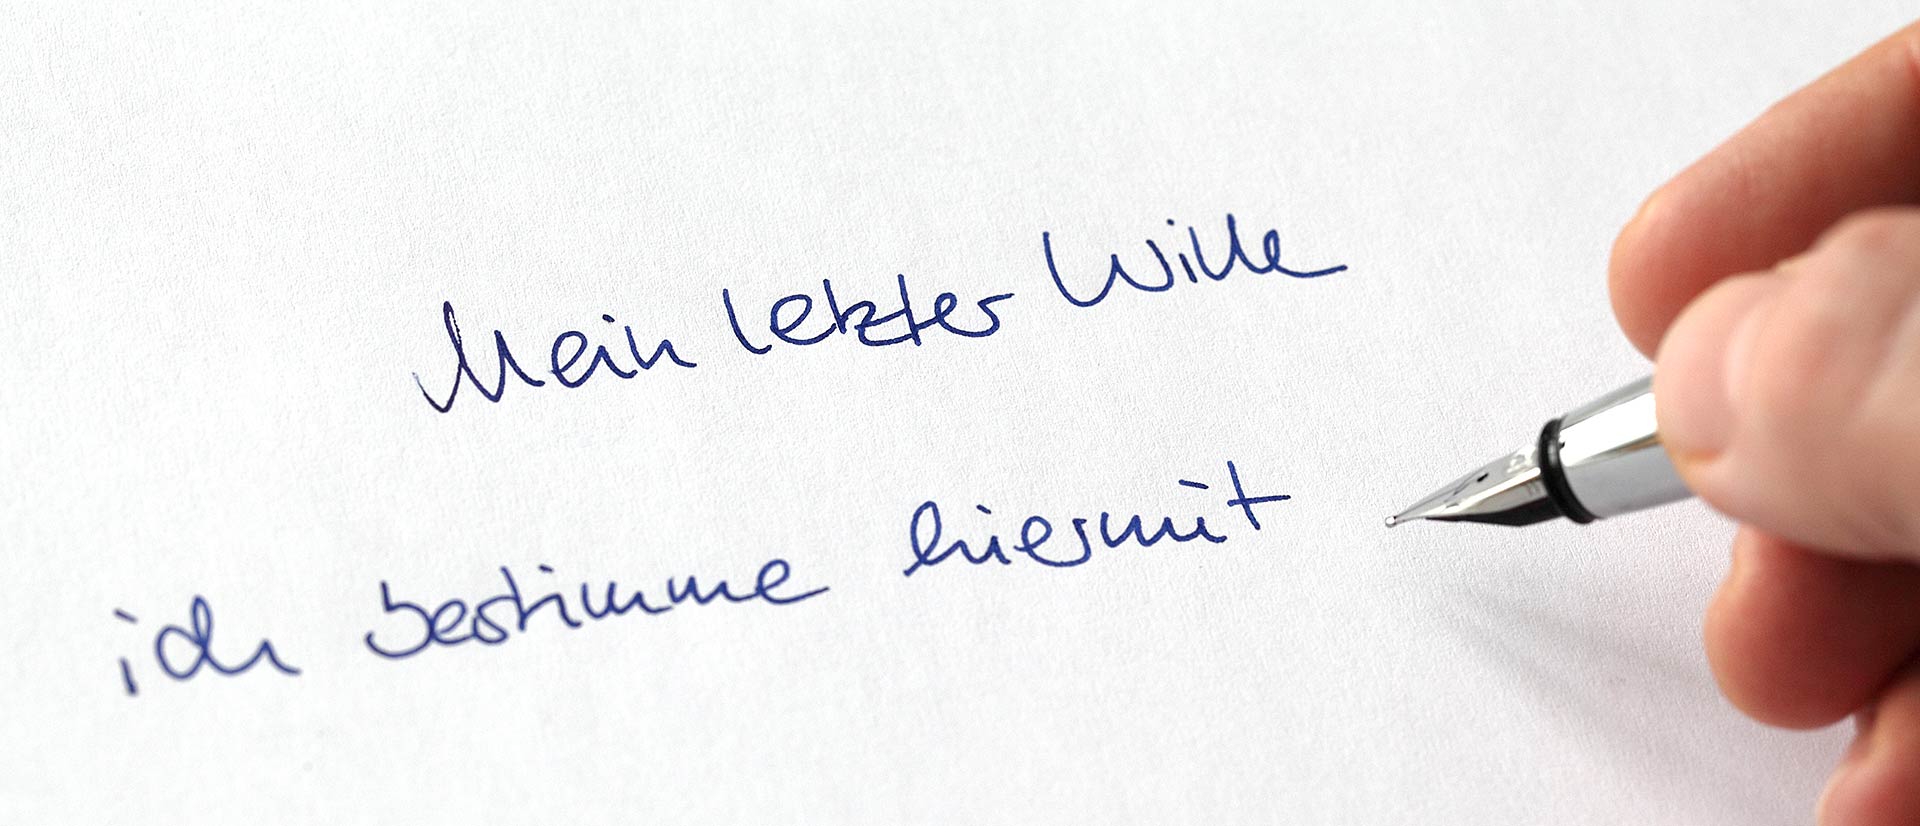 Mein letzter Wille
ich bestimme hiermit